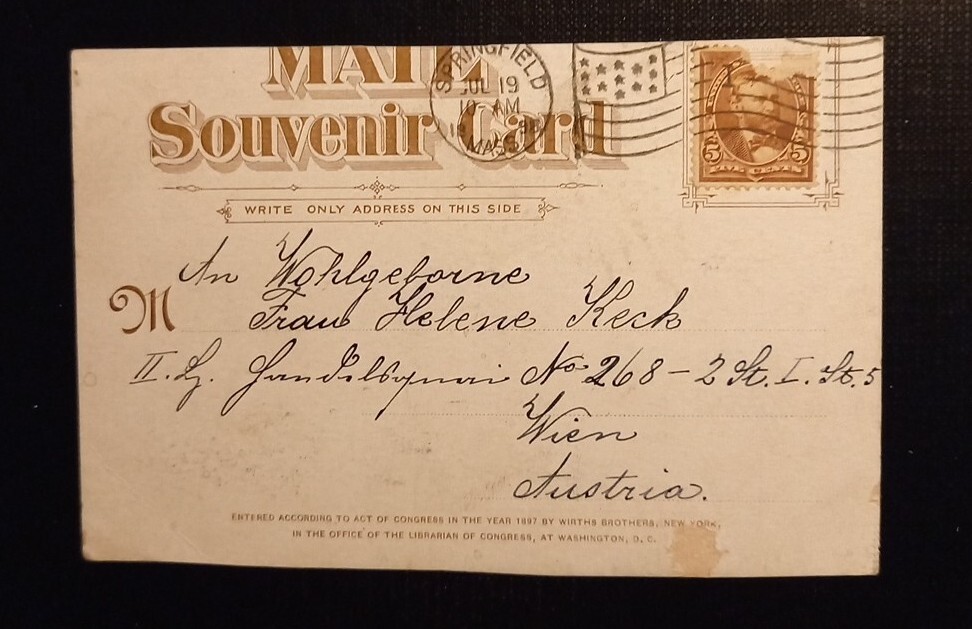 MAIL
Souvenir Card
SPRINGFIELD
JUL 19
10-AM
MASS
WRITE ONLY ADDRESS ON THIS SIDE
5 5
An Wohlgeborne
M
Frau Helene Keck
II. Handelsquai No 268 - 2 St. I. St. 5
Wien
Austria.
ENTERED ACCORDING TO ACT OF CONGRESS IN THE YEAR 1897 BY WIRTHS BROTHERS, NEW YORK,
IN THE OFFICE OF THE LIBRARIAN OF CONGRESS, AT WASHINGTON, D. C.